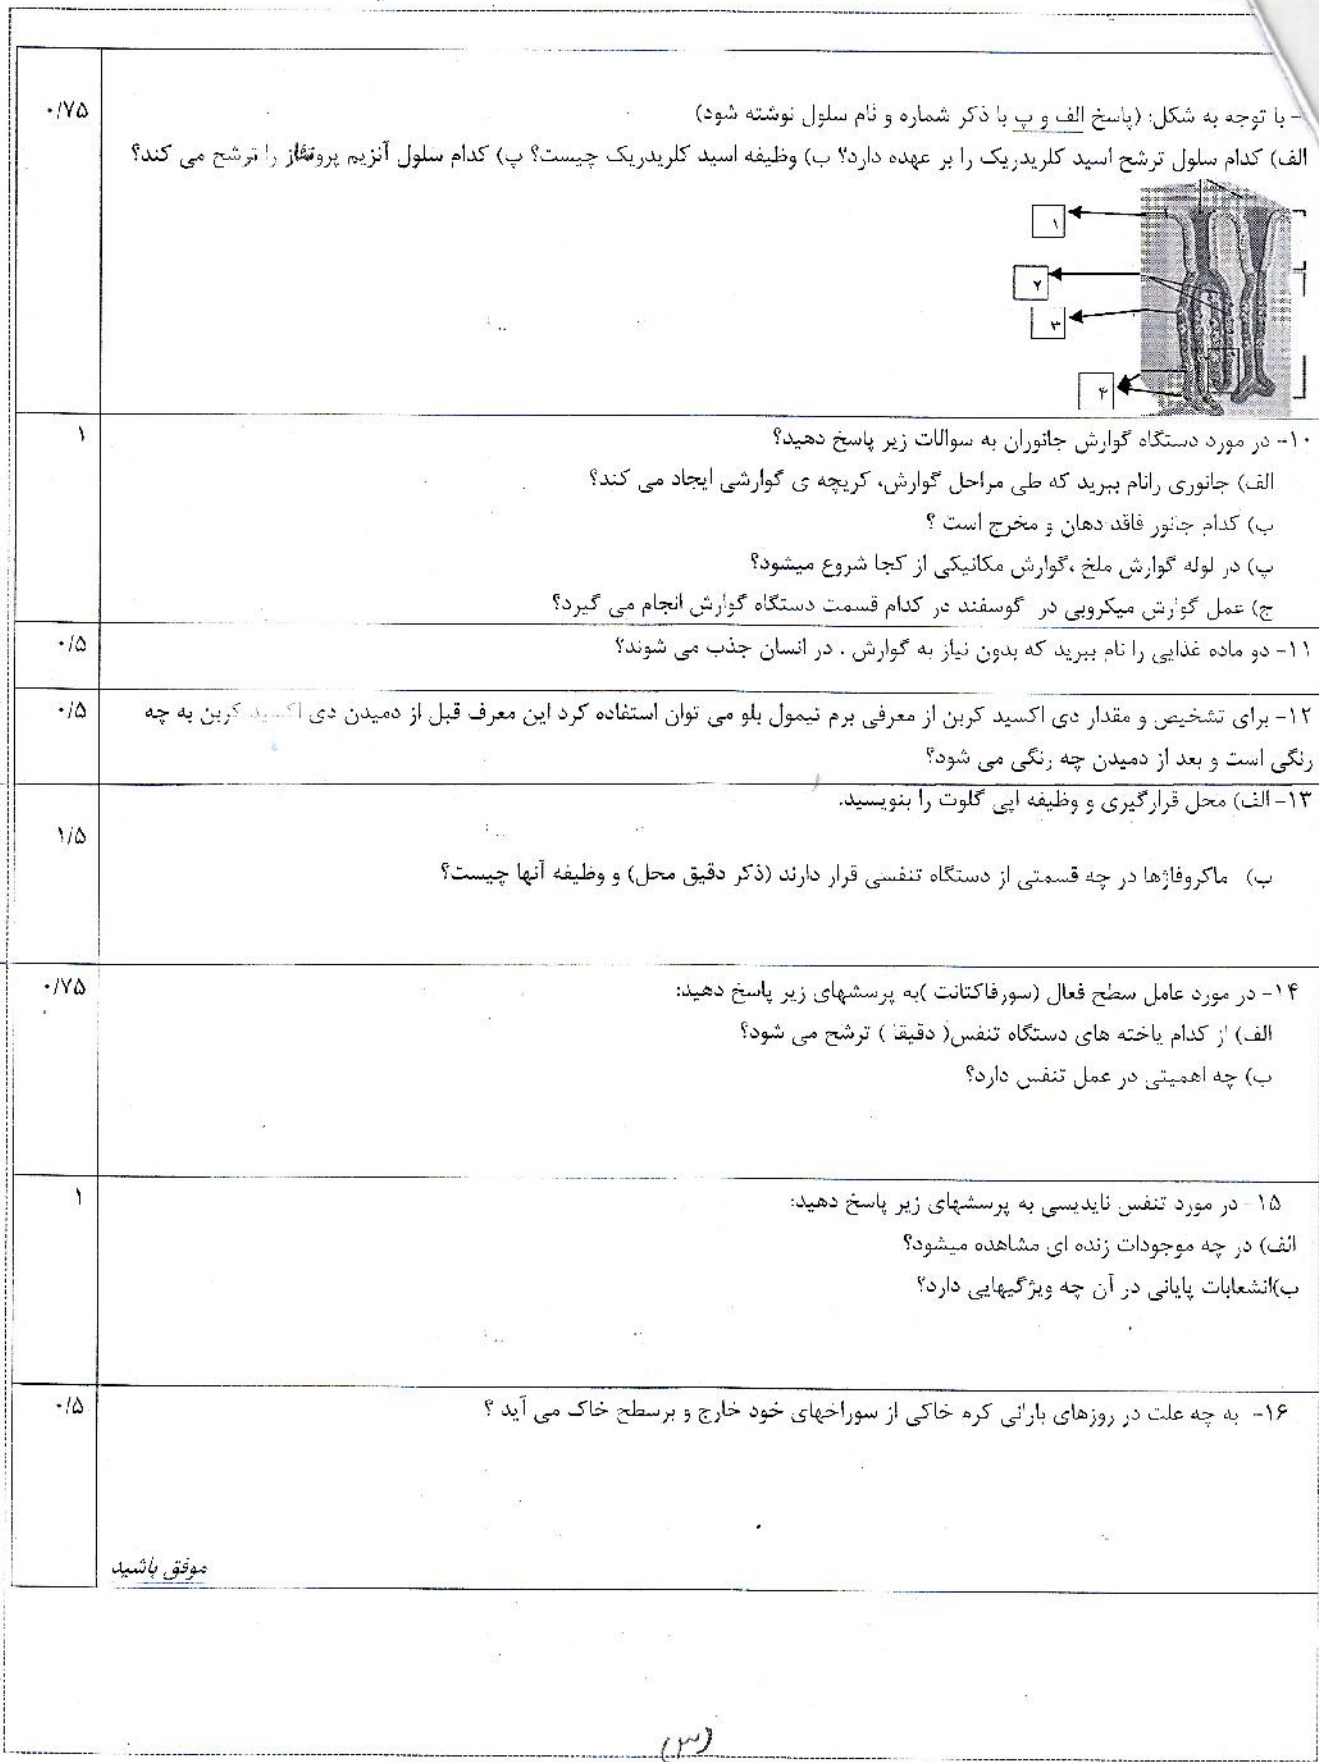 ۰/۷۵
- با توجه به شکل: (پاسخ الف و پ با ذکر شماره و نام سلول نوشته شود)
الف) کدام سلول ترشح اسید کلریدریک را بر عهده دارد؟ ب) وظیفه اسید کلریدریک چیست؟ پ) کدام سلول آنزیم پروتئاز را ترشح می کند؟
۱
۲
۳
۴
۱
۱۰- در مورد دستگاه گوارش جانوران به سوالات زیر پاسخ دهید؟
الف) جانوری رانام ببرید که طی مراحل گوارش، کریچه ی گوارشی ایجاد می کند؟
ب) کدام جانور فاقد دهان و مخرج است ؟
پ) در لوله گوارش ملخ ،گوارش مکانیکی از کجا شروع میشود؟
ج) عمل گوارش میکروبی در گوسفند در کدام قسمت دستگاه گوارش انجام می گیرد؟
۰/۵
۱۱- دو ماده غذایی را نام ببرید که بدون نیاز به گوارش . در انسان جذب می شوند؟
۰/۵
۱۲- برای تشخیص و مقدار دی اکسید کربن از معرفی برم تیمول بلو می توان استفاده کرد این معرف قبل از دمیدن دی اکسید کربن به چه
رنگی است و بعد از دمیدن چه رنگی می شود؟
۱۳- الف) محل قرارگیری و وظیفه اپی گلوت را بنویسید.
۱/۵
ب) ماکروفاژها در چه قسمتی از دستگاه تنفسی قرار دارند (ذکر دقیق محل) و وظیفه آنها چیست؟
۰/۷۵
۱۴- در مورد عامل سطح فعال (سورفاکتانت )به پرسشهای زیر پاسخ دهید:
الف) از کدام یاخته های دستگاه تنفس( دقیقا ) ترشح می شود؟
ب) چه اهمیتی در عمل تنفس دارد؟
۱
۱۵- در مورد تنفس نایدیسی به پرسشهای زیر پاسخ دهید:
الف) در چه موجودات زنده ای مشاهده میشود؟
ب)انشعابات پایانی در آن چه ویژگیهایی دارد؟
۰/۵
۱۶- به چه علت در روزهای بارانی کرم خاکی از سوراخهای خود خارج و برسطح خاک می آید ؟
موفق باشید
(۳)